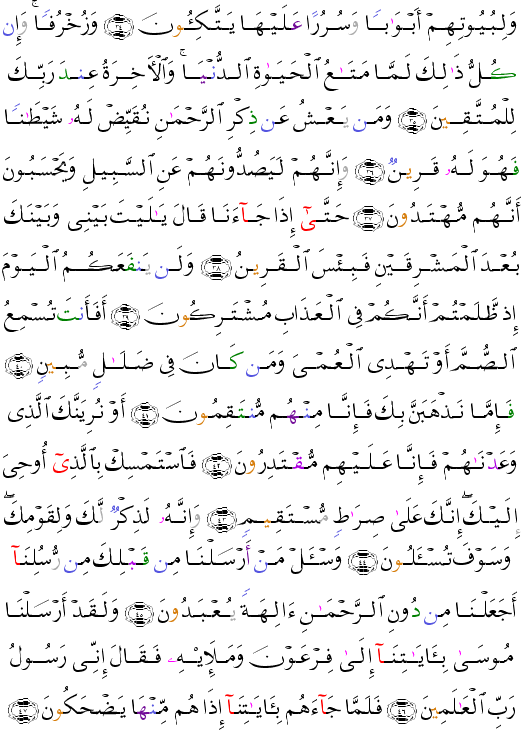 وَلِبُيُوتِهِمْ أَبْوَٰبًا وَسُرُرًا عَلَيْهَا يَتَّكِـُٔونَ ﴿٣٤﴾ وَزُخْرُفًا ۚ وَإِن
كُلُّ ذَٰلِكَ لَمَّا مَتَـٰعُ ٱلْحَيَوٰةِ ٱلدُّنْيَا ۚ وَٱلْـَٔاخِرَةُ عِندَ رَبِّكَ
لِلْمُتَّقِينَ ﴿٣٥﴾ وَمَن يَعْشُ عَن ذِكْرِ ٱلرَّحْمَـٰنِ نُقَيِّضْ لَهُۥ شَيْطَـٰنًا
فَهُوَ لَهُۥ قَرِينٌ ﴿٣٦﴾ وَإِنَّهُمْ لَيَصُدُّونَهُمْ عَنِ ٱلسَّبِيلِ وَيَحْسَبُونَ
أَنَّهُم مُّهْتَدُونَ ﴿٣٧﴾ حَتَّىٰٓ إِذَا جَآءَنَا قَالَ يَـٰلَيْتَ بَيْنِى وَبَيْنَكَ
بُعْدَ ٱلْمَشْرِقَيْنِ فَبِئْسَ ٱلْقَرِينُ ﴿٣٨﴾ وَلَن يَنفَعَكُمُ ٱلْيَوْمَ
إِذ ظَّلَمْتُمْ أَنَّكُمْ فِى ٱلْعَذَابِ مُشْتَرِكُونَ ﴿٣٩﴾ أَفَأَنتَ تُسْمِعُ
ٱلصُّمَّ أَوْ تَهْدِى ٱلْعُمْىَ وَمَن كَانَ فِى ضَلَـٰلٍ مُّبِينٍ ﴿٤٠﴾
فَإِمَّا نَذْهَبَنَّ بِكَ فَإِنَّا مِنْهُم مُّنتَقِمُونَ ﴿٤١﴾ أَوْ نُرِيَنَّكَ ٱلَّذِى
وَعَدْنَـٰهُمْ فَإِنَّا عَلَيْهِم مُّقْتَدِرُونَ ﴿٤٢﴾ فَٱسْتَمْسِكْ بِٱلَّذِىٓ أُوحِىَ
إِلَيْكَ ۖ إِنَّكَ عَلَىٰ صِرَٰطٍ مُّسْتَقِيمٍ ﴿٤٣﴾ وَإِنَّهُۥ لَذِكْرٌ لَّكَ وَلِقَوْمِكَ ۖ
وَسَوْفَ تُسْـَٔلُونَ ﴿٤٤﴾ وَسْـَٔلْ مَنْ أَرْسَلْنَا مِن قَبْلِكَ مِن رُّسُلِنَآ
أَجَعَلْنَا مِن دُونِ ٱلرَّحْمَـٰنِ ءَالِهَةً يُعْبَدُونَ ﴿٤٥﴾ وَلَقَدْ أَرْسَلْنَا
مُوسَىٰ بِـَٔايَـٰتِنَآ إِلَىٰ فِرْعَوْنَ وَمَلَإِي۟هِۦ فَقَالَ إِنِّى رَسُولُ
رَبِّ ٱلْعَـٰلَمِينَ ﴿٤٦﴾ فَلَمَّا جَآءَهُم بِـَٔايَـٰتِنَآ إِذَا هُم مِّنْهَا يَضْحَكُونَ ﴿٤٧﴾